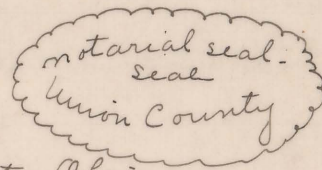 notarial seal.
Seal
Union County